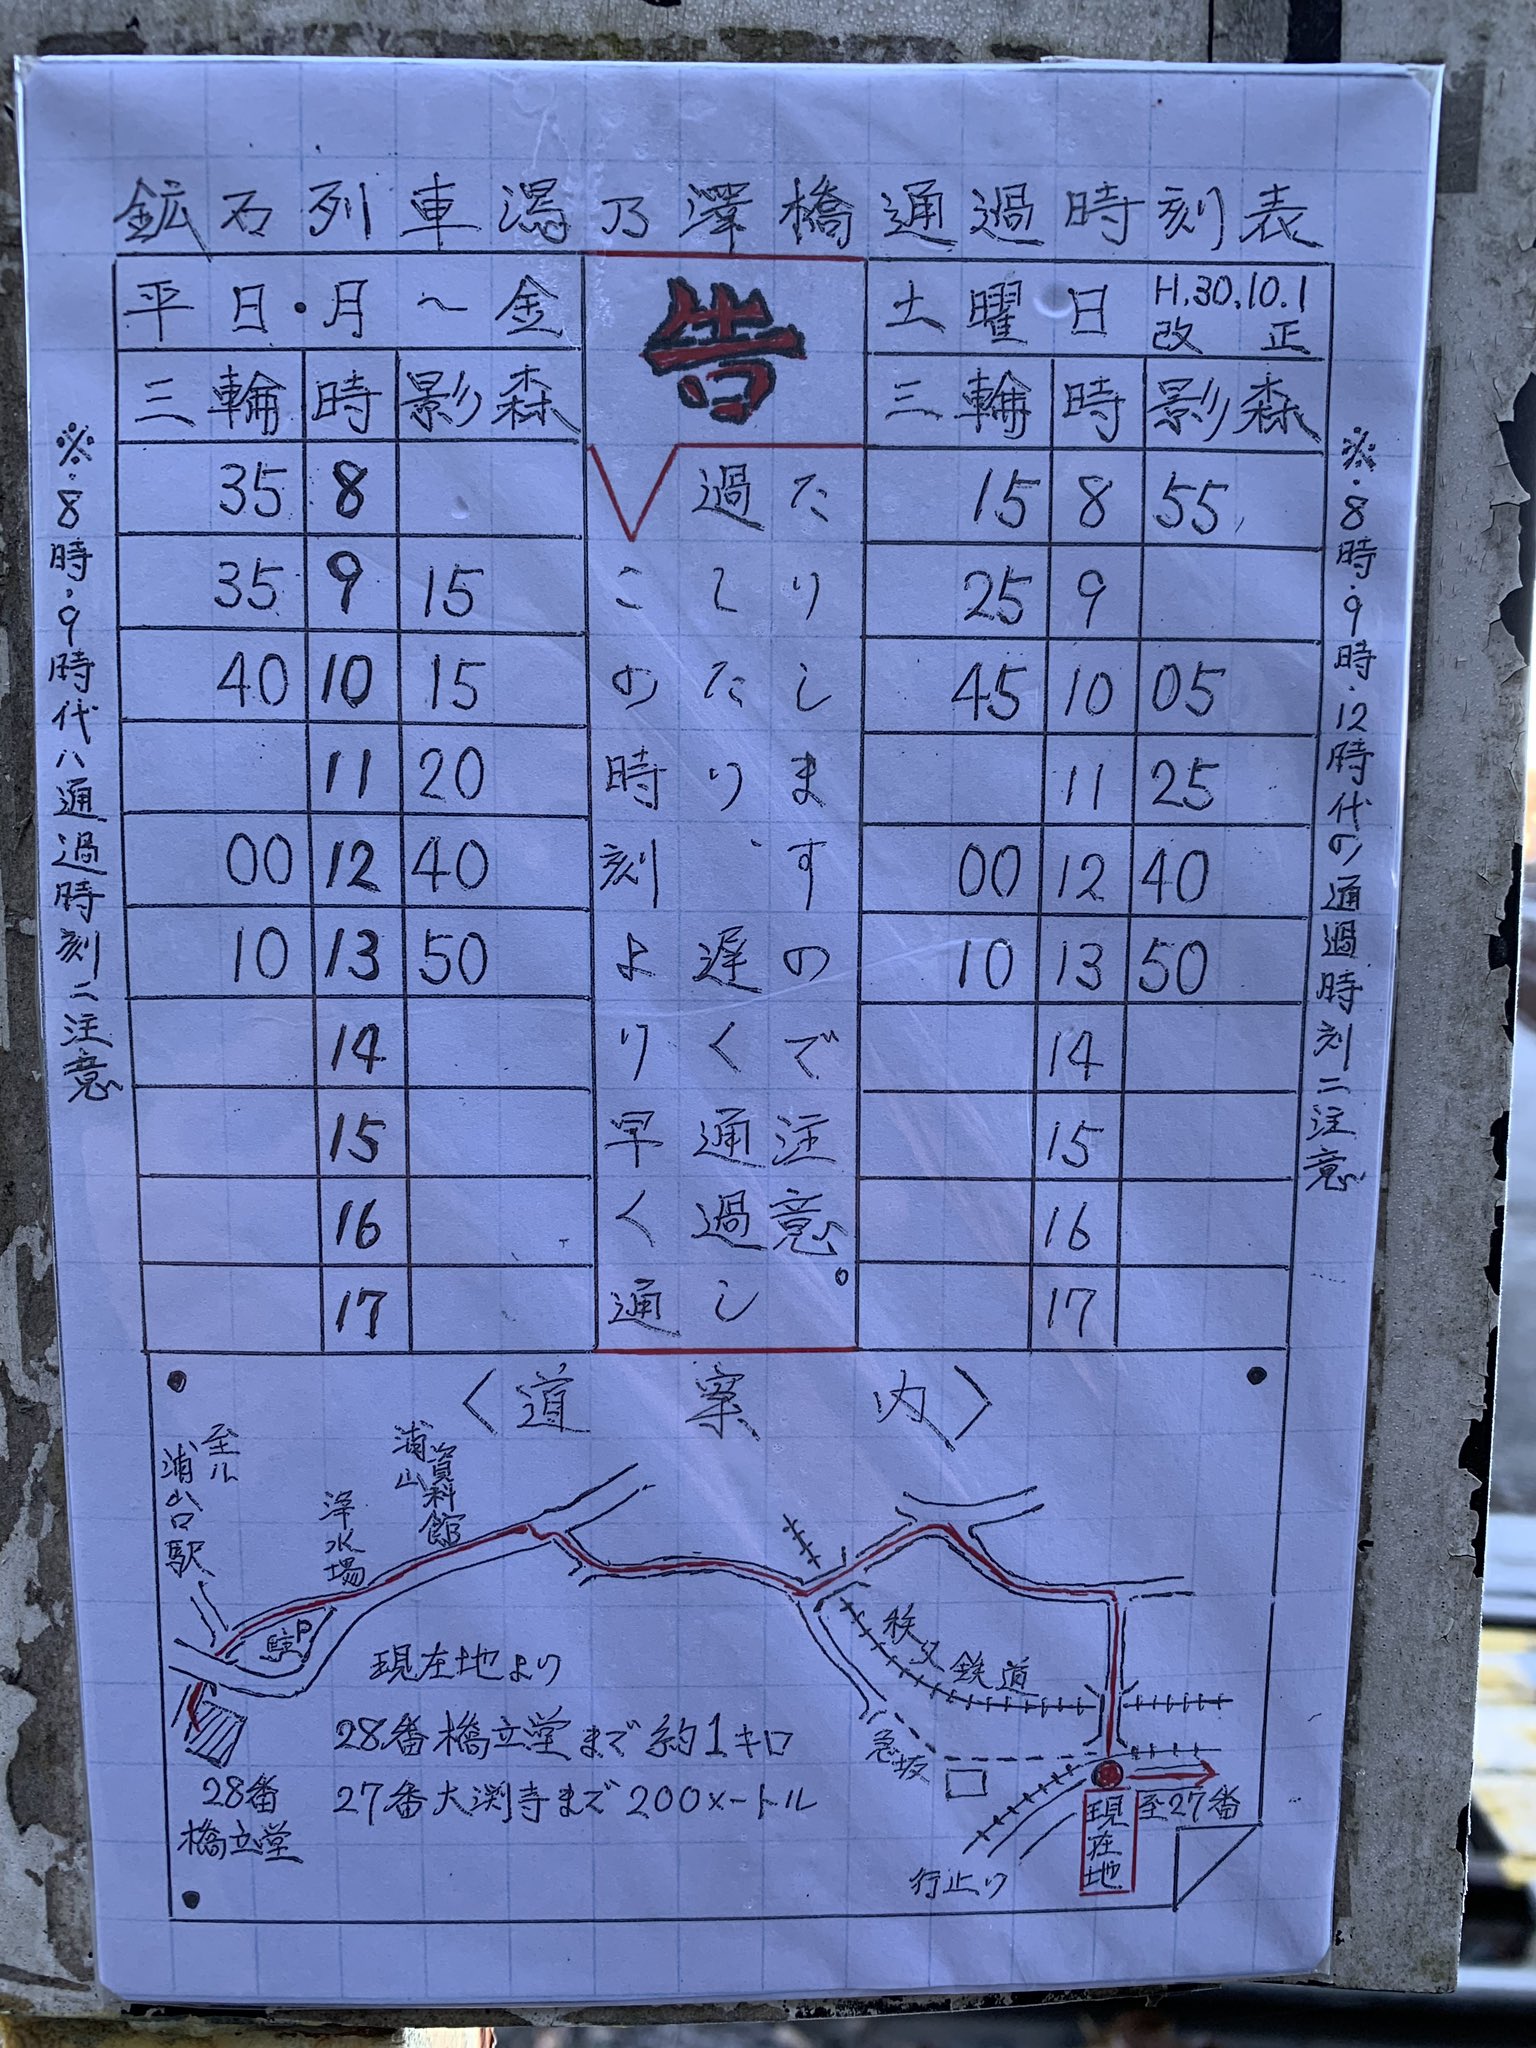 鉱石列車潟乃澤橋通過時刻表
平日・月～金
三輪 時 影森
35 8
35 9 15
40 10 15
11 20
00 12 40
10 13 50
14
15
16
17
告
この時刻より早く通
過したりゞ遅く通過し
たりしますので注意。
土曜日 H.30.10.1
改正
三輪 時 影森
15 8 55
25 9
45 10 05
11 25
00 12 40
10 13 50
14
15
16
17
※.8時.9時代ハ通過時刻ニ注意
※.8時.9時.12時代の通過時刻ニ注意
〈道案内〉
至ル
浦山口駅
浄水場
浦山
資料館
駐P
秩父鉄道
急坂
現在地より
28番橋立堂まで約1キロ
27番大渕寺まで200メートル
28番
橋立堂
行止り
現在地
至27番